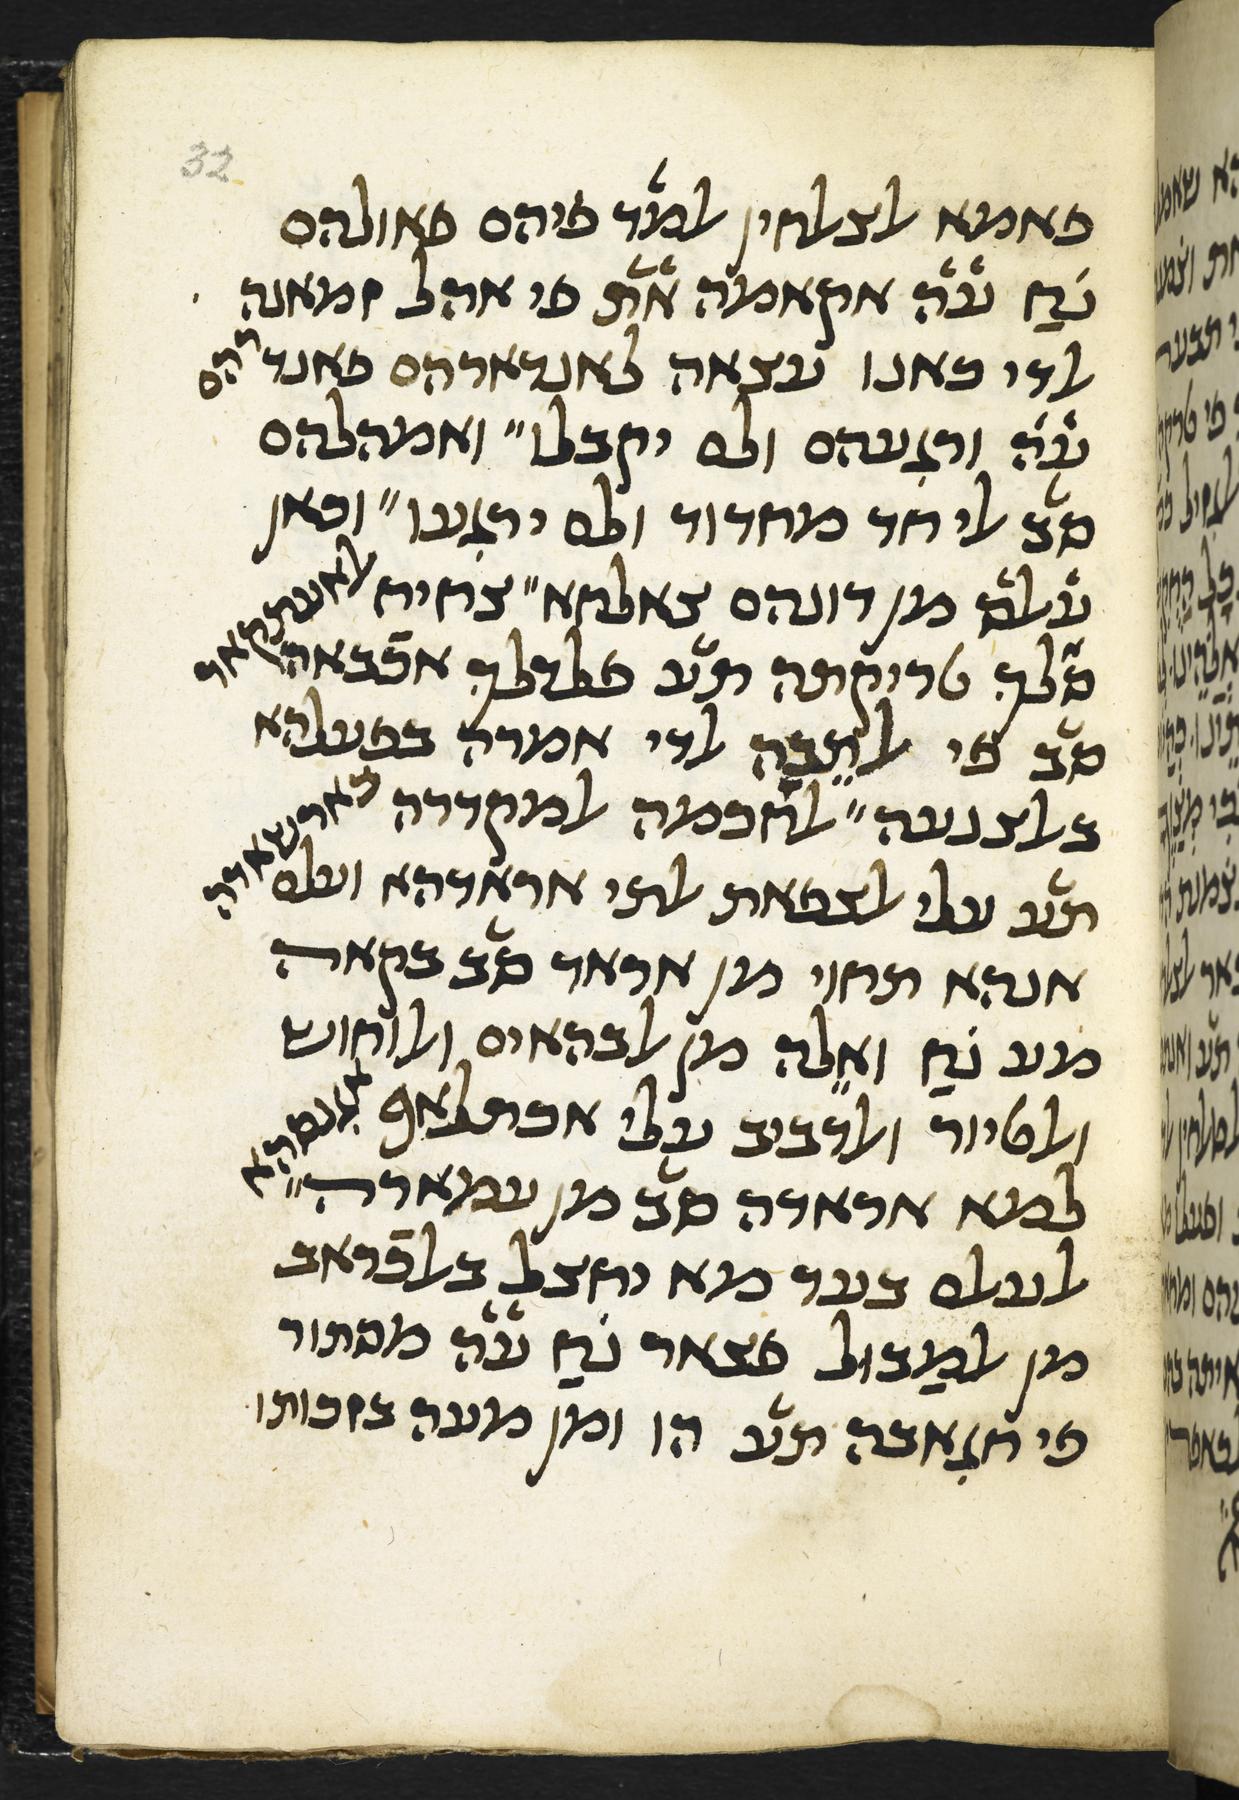 32
פאמא לצלחין למ̇ד פיהם פאולהם
נֹחַ ע̇ה̇ אקאמה א̇ת̇ פי אהל זמאנה
לדי כאנו עצאה לאנדארהם פאנדרהם
ע̇ה̇ ורגעהם ולם יקבלו״ ואמהלהם
ס̇צ לי חד מחדוד ולם ירגעו״ וכאן
ע̇לם̇ מן דונהם צאלחא״ צחיח לאעתקאד
סלך טריקתה ת̇ע פלדלך אכבאה
ס̇ב פי לתֵבָה לדי אמרה בפעלהא
בלצנעה״ לחכמה למקדרה
ת̇ע עלי לצפאת לתי אראדהא ועלם
אנהא תחוי מן אראד ס̇ב בקאה
מע נֹחַ ואלה מן לבהאים ולוחוש
ולטיור ולדביב עלי אכתלאף אגנסהא
למא אראדה ס̇ב מן עמארה״
לעלם בעד מא יחצל בלכראב
מן למַבול פצאר נֹחַ ע̇ה̇ מכתור
פי חגאבה ת̇ע הו ומן מעה בזכותו